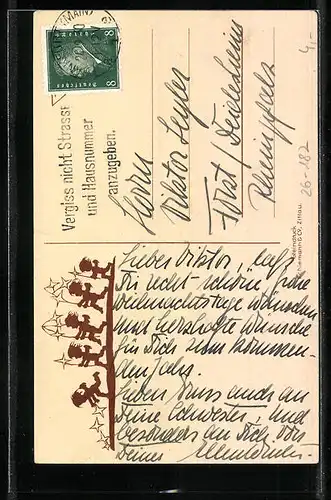 (MAIN)
8
8
Deutsches
Vergiss nicht Strasse
und Hausnummer
anzugeben.
Herrn
Viktor
Forst / Deidesheim
Rheinpfalz
4,-
26-182
Zittau.
Lieber Viktor, lass
Dir recht schöne, frohe
Weihnachtstage wünschen
und herzhafte Wünsche
für Dich zum kommen-
den Jahr.
Lieben Gruss auch an
Deine Schwester, und
besonders an Dich von
Deiner